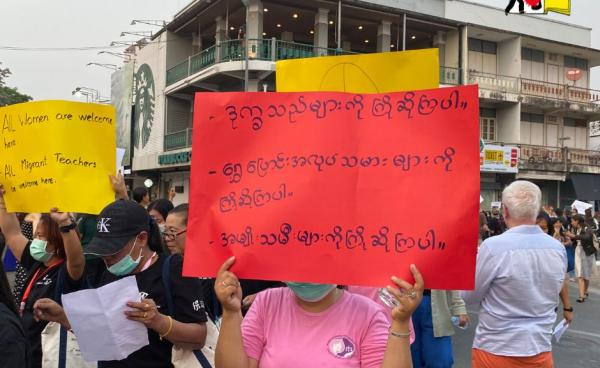 ALL Women are welcome
here.
ALL Migrant Teachers
be welcome here.
- ဒုက္ခသည်များကို ကြိုဆိုကြပါ။
- ရွှေ့ပြောင်းအလုပ်သမားများကို
ကြိုဆိုကြပါ။
- အမျိုးသမီးများကိုကြိုဆိုကြပါ။